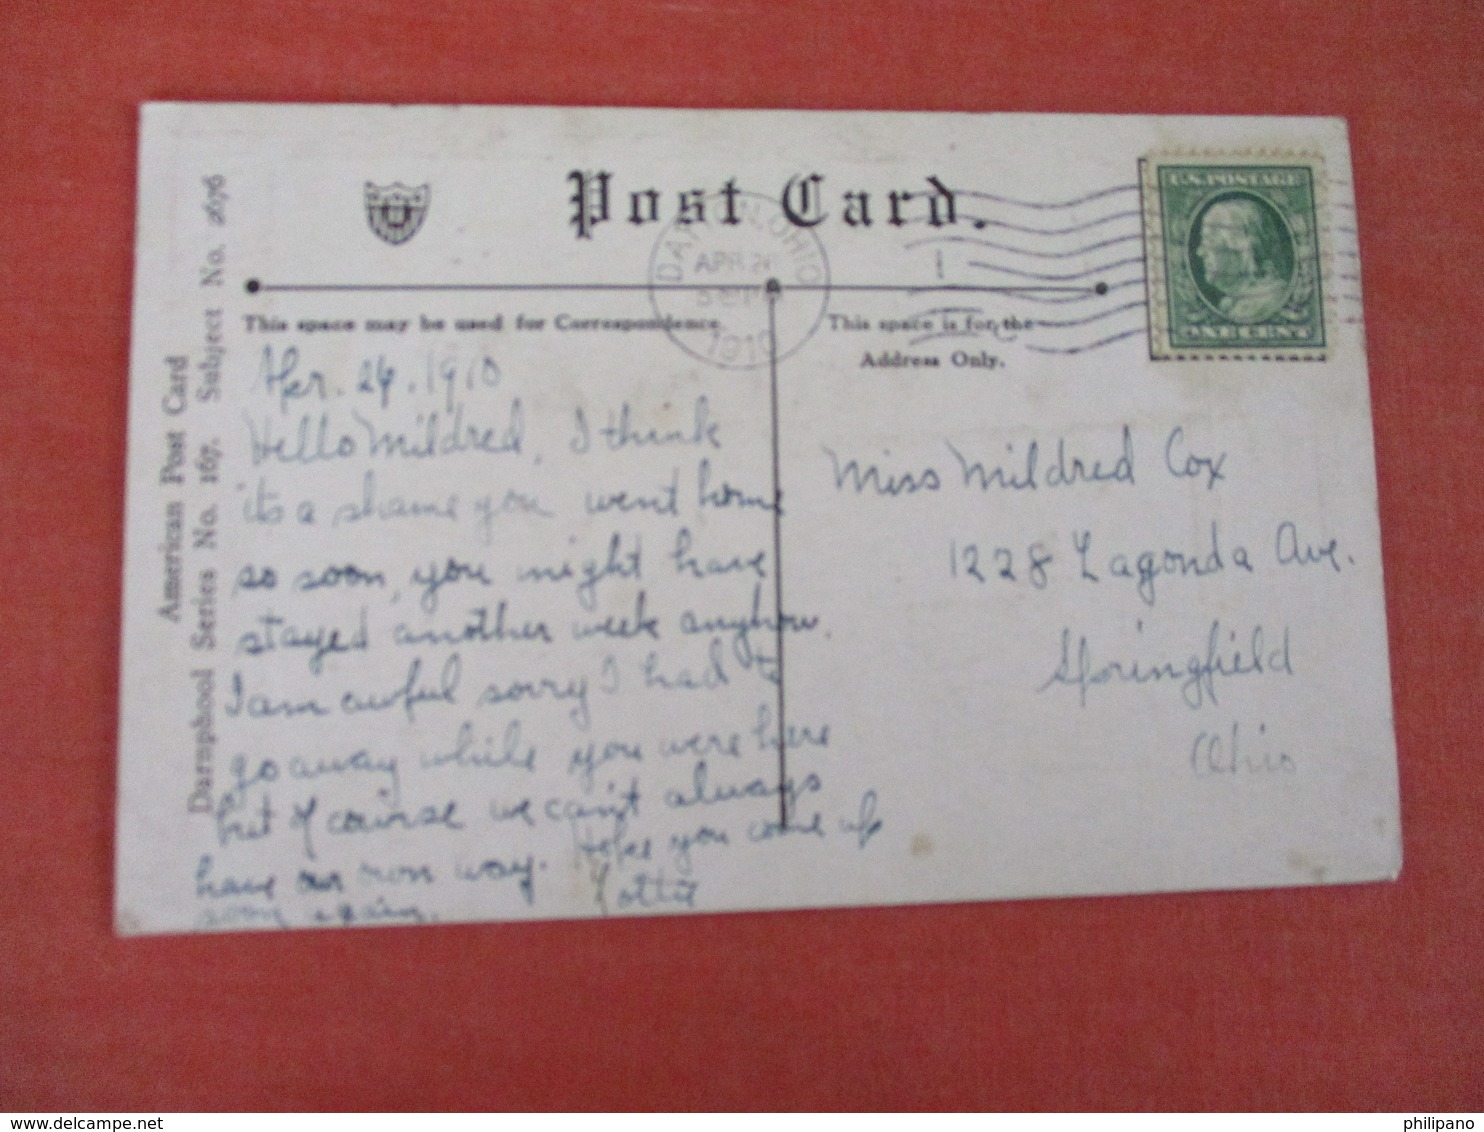 Post Card.
U.S. POSTAGE
ONE CENT
DAYTON, OHIO
APR 26
1910
This space may be used for Correspondence
This space is for the
Address Only.
American Post Card
Darnphool Series No. 167. Subject No. 2676
Apr. 26, 1910
Hello Mildred, I think
its a shame you went home
so soon, you might have
stayed another week anyhow.
I am awful sorry I had to
go away while you were here
but of course we can't always
have our own way. Hope you come up
soon again. Lottie
Miss Mildred Cox
1228 Lagonda Ave.
Springfield
Ohio
www.delcampe.net
philipano